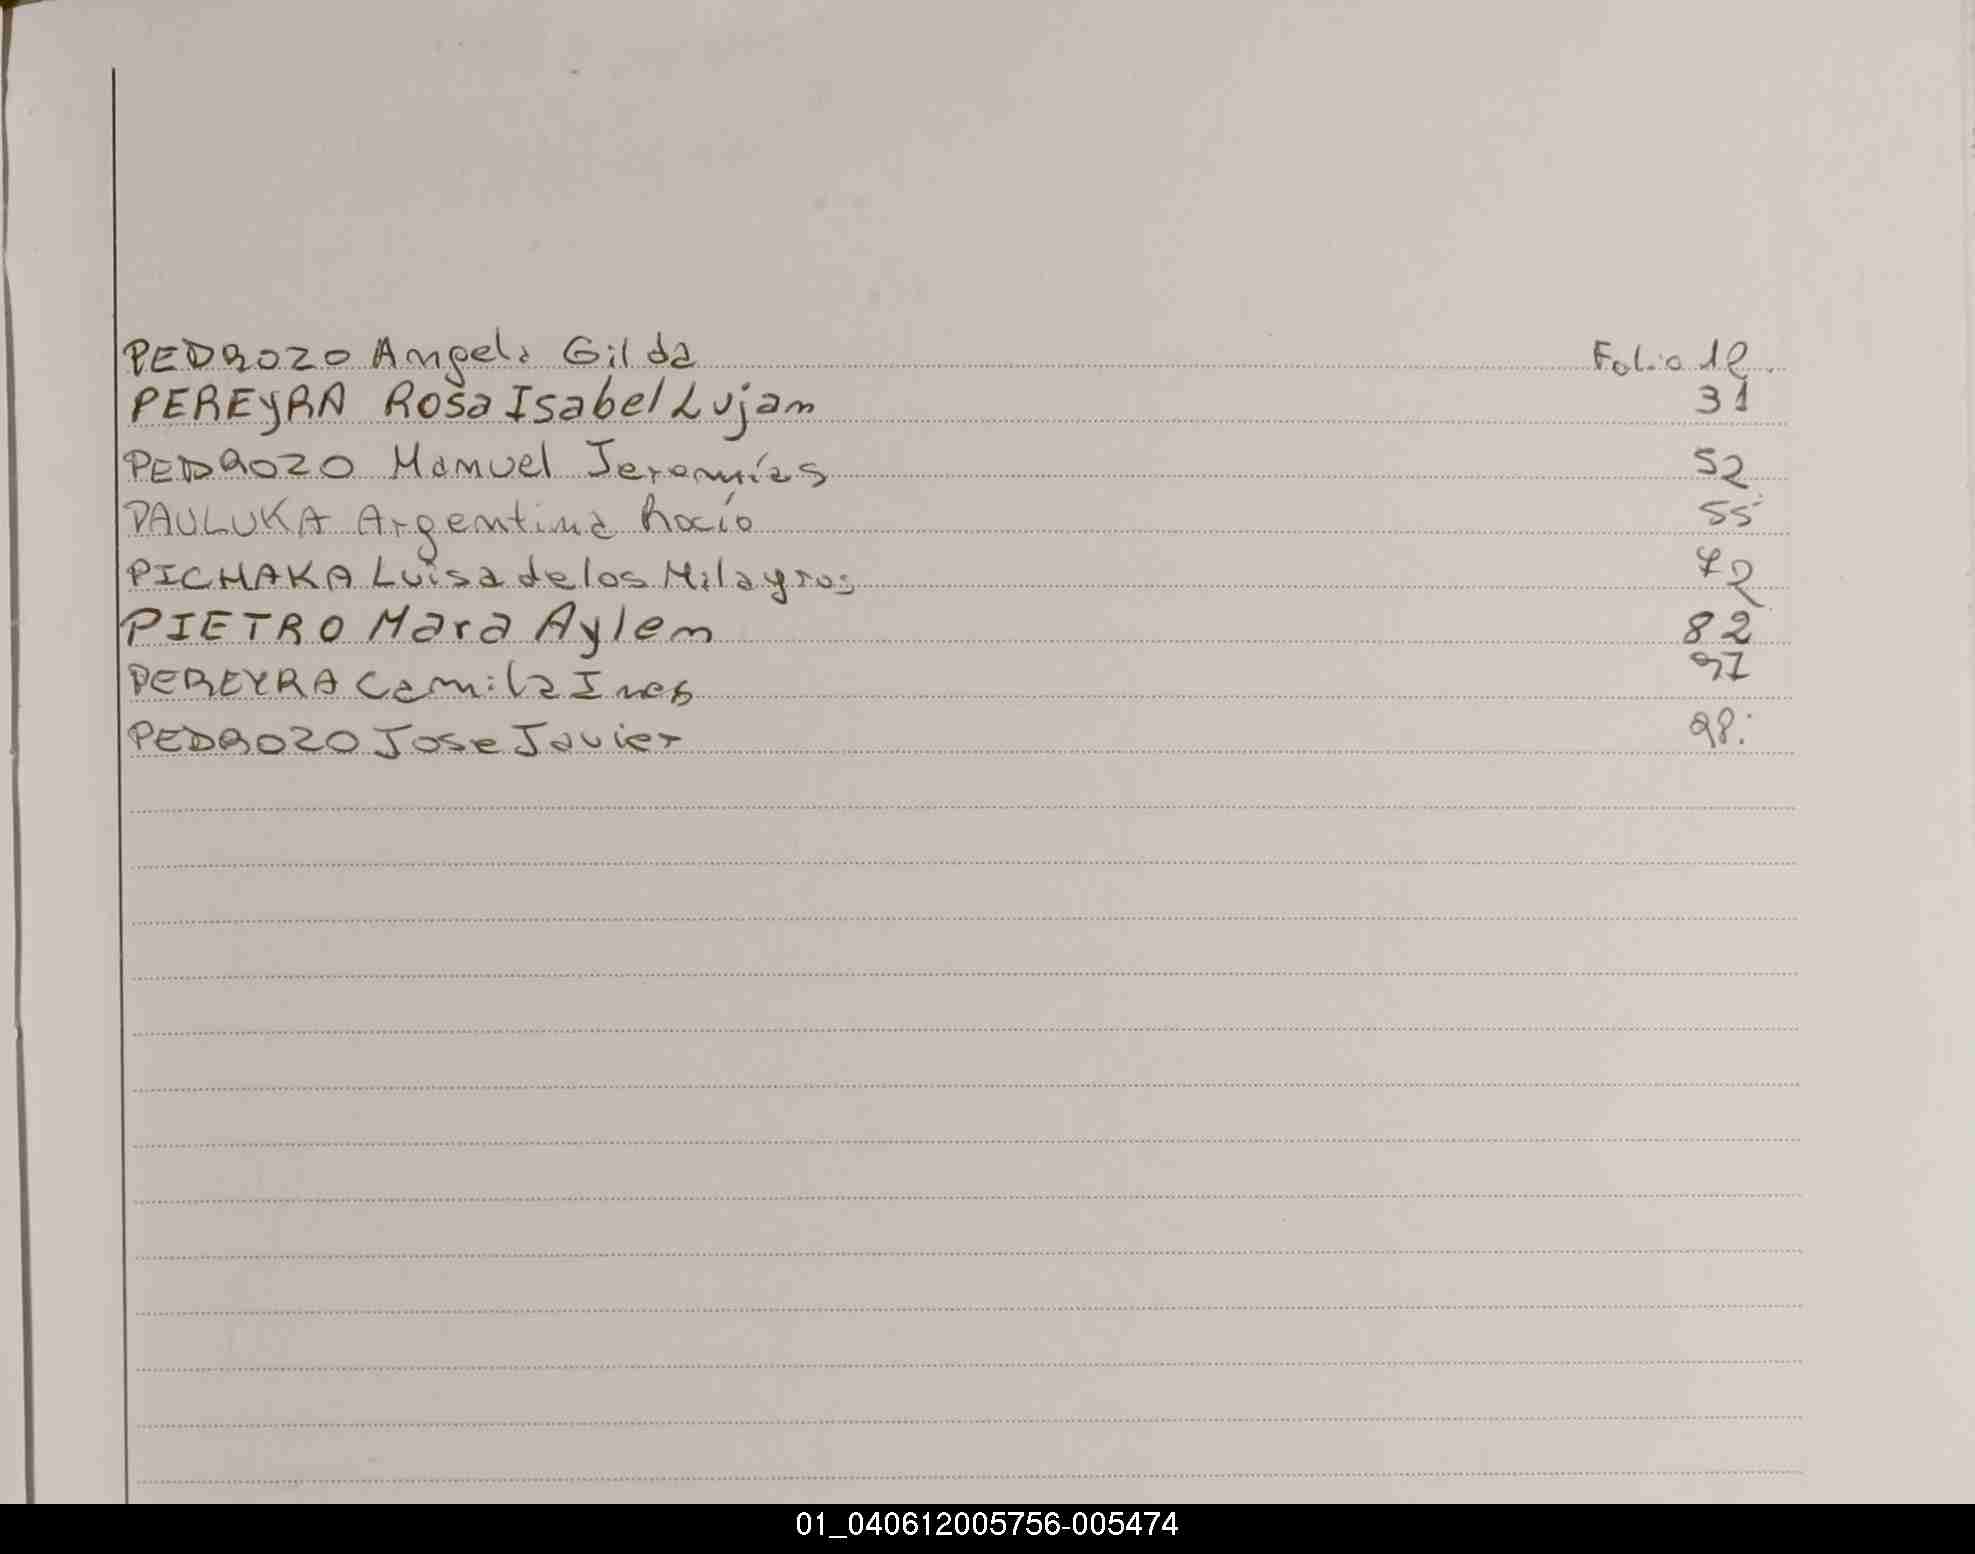 PEDROZO Angela Gilda Folio 18.
PEREYRA Rosa Isabel Lujan 31
PEDROZO Manuel Jeremías 52
PAULUKA Argentina Rocío 55
PICHAKA Luisa de los Milagros 72
PIETRO Mara Aylen 82
PEREYRA Camila Ines
PEDROZO Jose Javier 98.
01_040612005756-005474